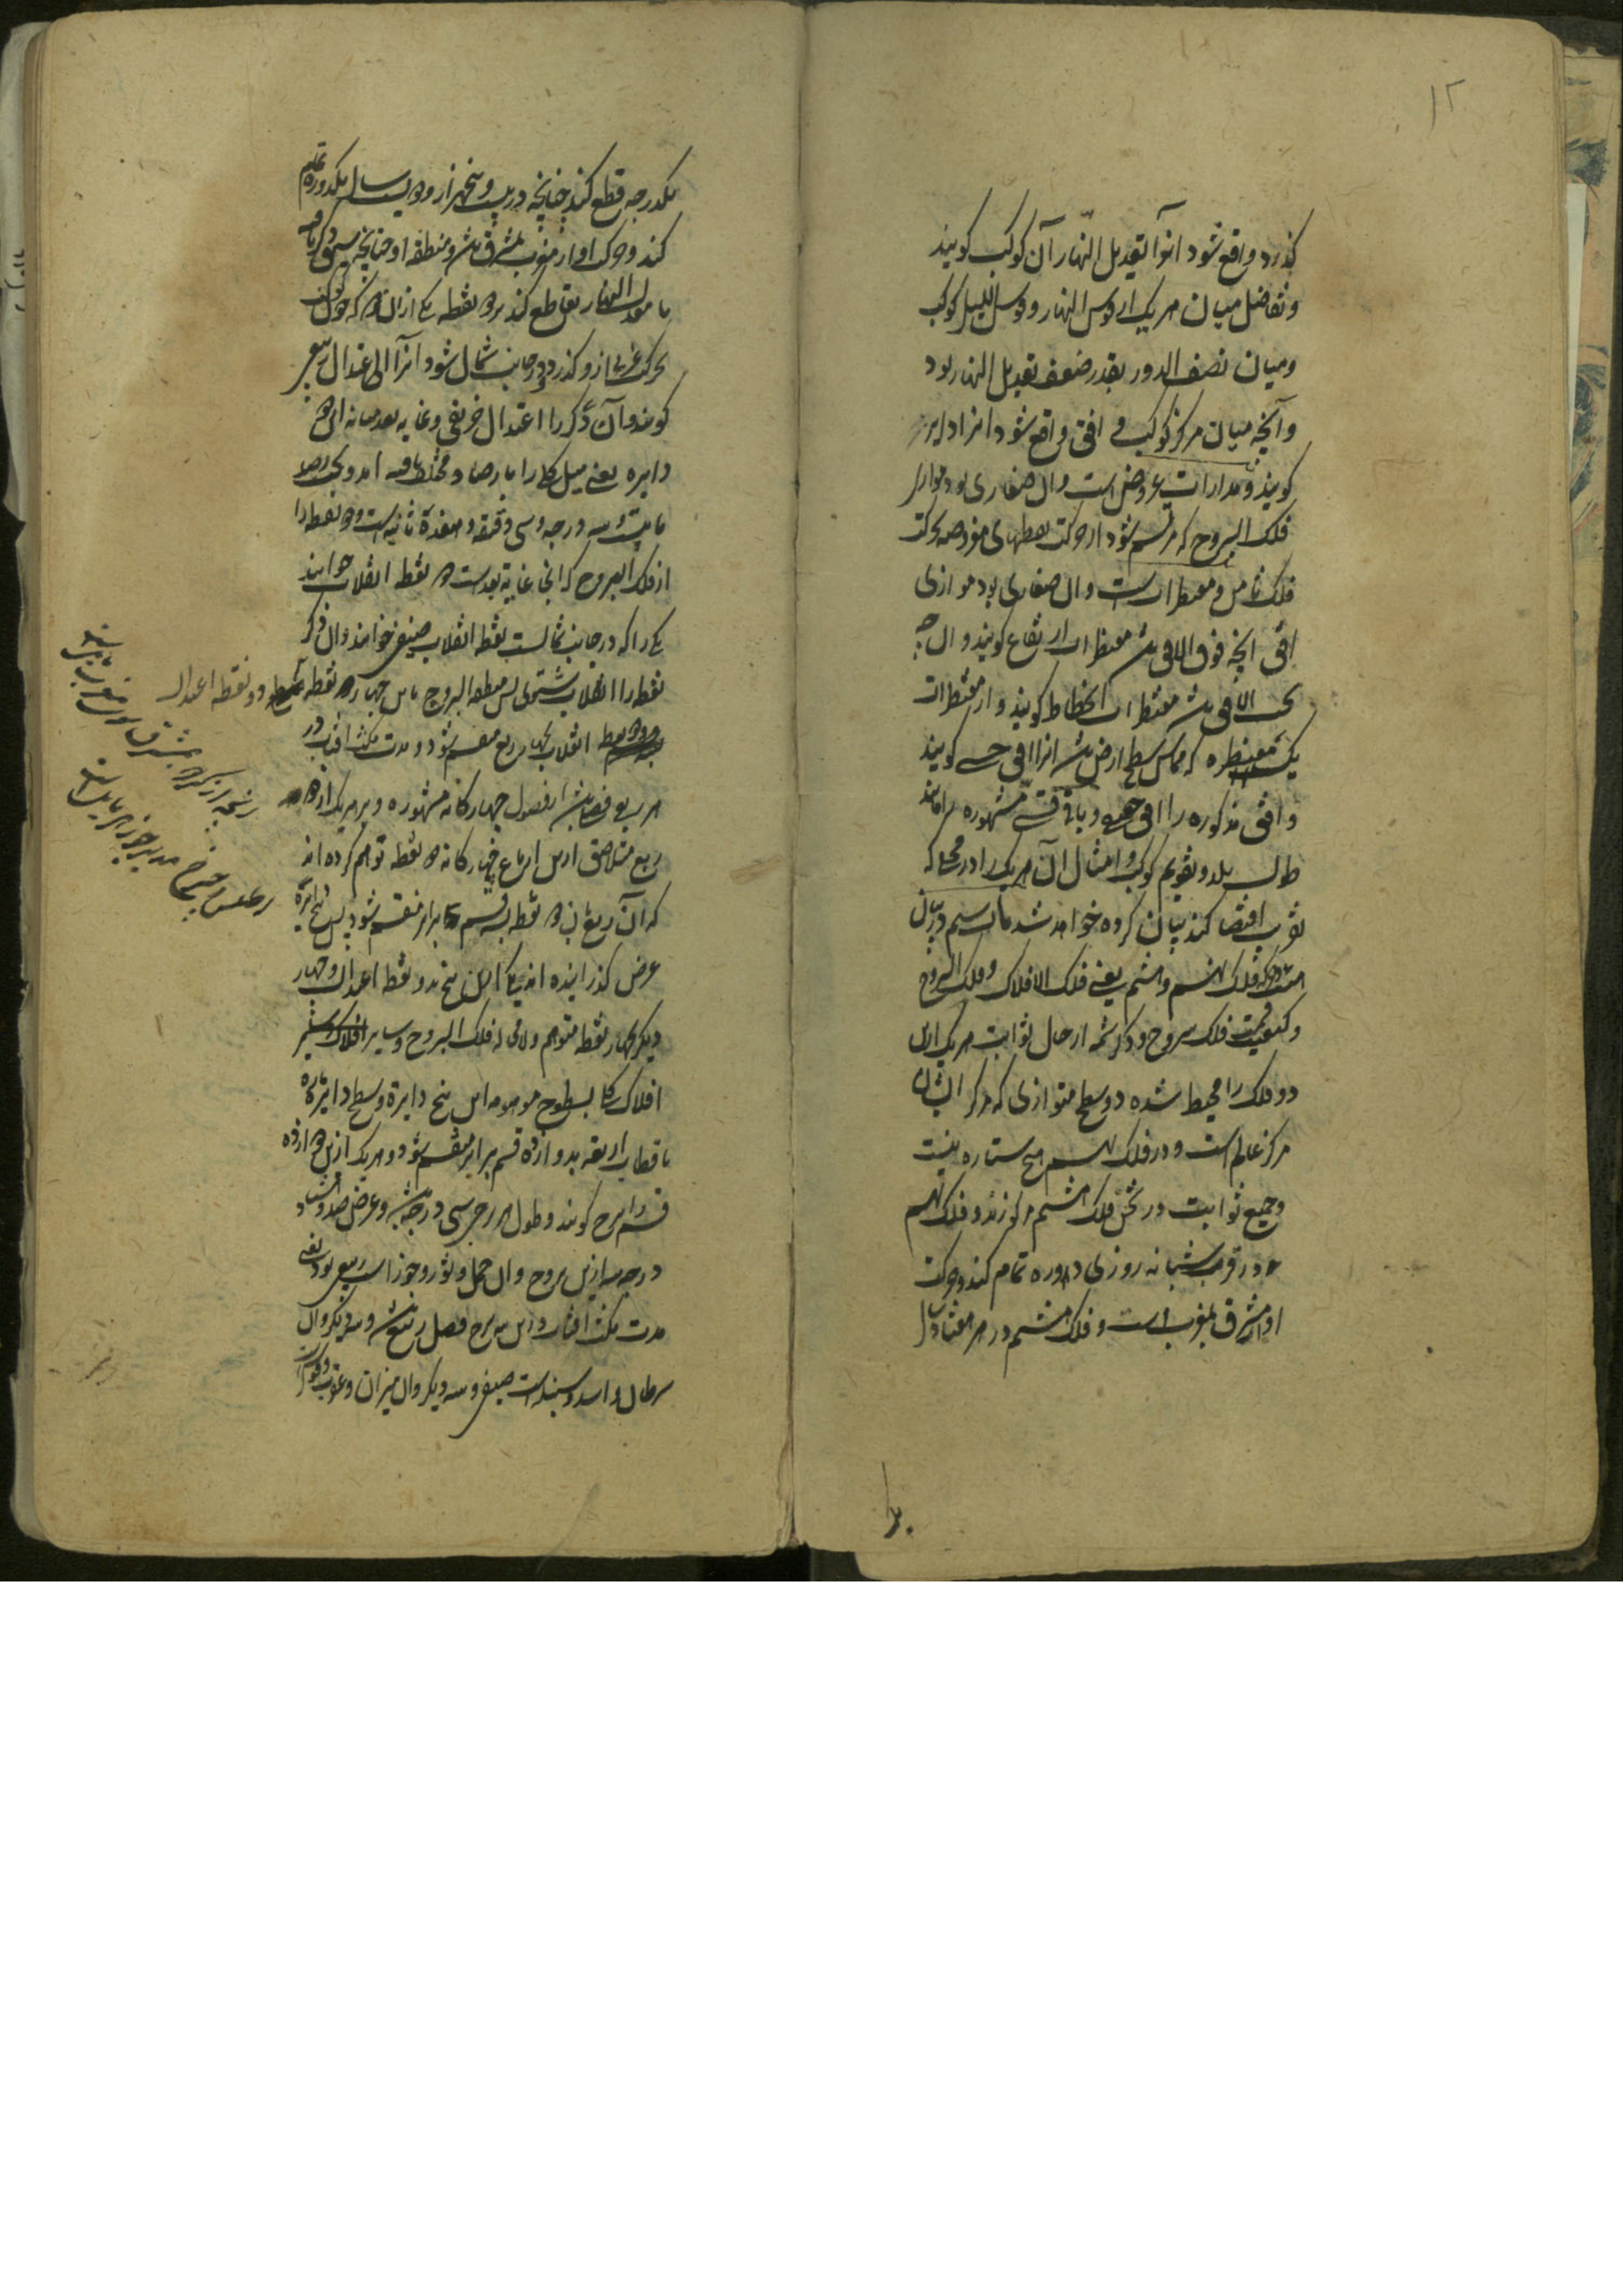 ۱۲
گذرد واقع شود انرا تعدیل النهار آن کوکب گویند
و تفاضل میان هر یک از قوس النهار و قوس اللیل کوکب
و میان نصف الدور بقدر ضعف تعدیل النهار بود
و آنچه میان مرکز کوکب و افق واقع شود انرا دایره
گویند و مدارات عروض است و ان صغاری بود موازی
فلک البروج که مرتسم شود از حرکت نقطهای مفروضه بحرکت
فلک ثامن و مقنطرات است و ان صغاری بود موازی
افق انچه فوق الافق باشد مقنطرات ارتفاع گویند و ان چه
تحت الافق باشد مقنطرات انحطاط گویند و از مقنطرات
یک مقنطره که مماس سطح ارض باشد انرا افق حسی گویند
و افق مذکوره را افق حقیقی و باقی قسی مشهوره را مانند
طول بلد و تقویم کوکب و امثال آن هر یک را در محلی که
اقتضا کند بیان کرده خواهد شد باب سیم در بیان
فلک نهم و هشتم یعنی فلک الافلاک و فلک البروج
و کیفیت قسمت فلک بروج و ذکر شمه از حال ثوابت هر یک ازین
دو فلک را محیط شده دو سطح متوازی که مرکز ایشان
مرکز عالم است و در فلک نهم هیچ ستاره نیست
و جمیع ثوابت در ثخن فلک هشتم مرکوزند و فلک نهم
در قرب شبانه روزی دوره تمام کند و حرکت
او از مشرق بمغرب است و فلک هشتم در هر هفتاد سال
یکدرجه قطع کند چنانچه در بیست و پنجهزار و دویست سال یکدوره تمام
کند و حرکت او از مغرب بمشرق باشد و منطقه او چنانچه
با معدل النهار تقاطع کند بر دو نقطه یکی از ان دو که چون کوکب
بحرکت غربی از و گذرد در جانب شمال شود انرا اعتدال ربیعی
گویند و آن دگر را اعتدال خریفی و غایه بعد میانه این دو
دایره یعنی میل کلی را بارصاد مختلف یافته اند و بحسب رصد
ما بیست و سه درجه و سی دقیقه و هفده ثانیه است و دو نقطه را
از فلک البروج که انجا غایة بعد است دو نقطه انقلاب خوانند
یکی را که در جانب شمالست نقطه انقلاب صیفی خوانند و ان دگر
نقطه را انقلاب شتوی پس منطقه البروج باین چهار نقطه دو نقطه اعتدال
و دو نقطه انقلاب بچهار ربع منقسم شود و مدت مکث افتاب در
هر ربعی فصلی باشد از فصول چهارگانه مشهوره و بر هر یک از دو
ربع متلاصق ازین ارباع چهارگانه دو نقطه توهم کرده اند
که آن ربع بان دو نقطه بسه قسم برابر منقسم شود پس پنج دایره
عرض گذرانیده اند یکی ازین پنج بدو نقطه اعتدال و چهار
دیگر بچهار نقطه متوهم فلک البروج و سایر افلاک
افلاک کلی بسطوح موهومه این پنج دایره و سطح دایره ماره
باقطاب اربعه بدوازده قسم برابر منقسم شود و هر یک ازین دوازده
قسم را برج گویند و طول هر برجی سی درجه باشد و عرض صد و هشتاد
درجه سه ازین بروج و ان حمل و ثور و جوزاست ربیعی بود یعنی
مدت مکث افتاب درین سه برج فصل ربیع باشد و سه دیگر و ان
سرطان و اسد و سنبله است صیفی و سه دیگر و ان میزان و عقرب و قوس